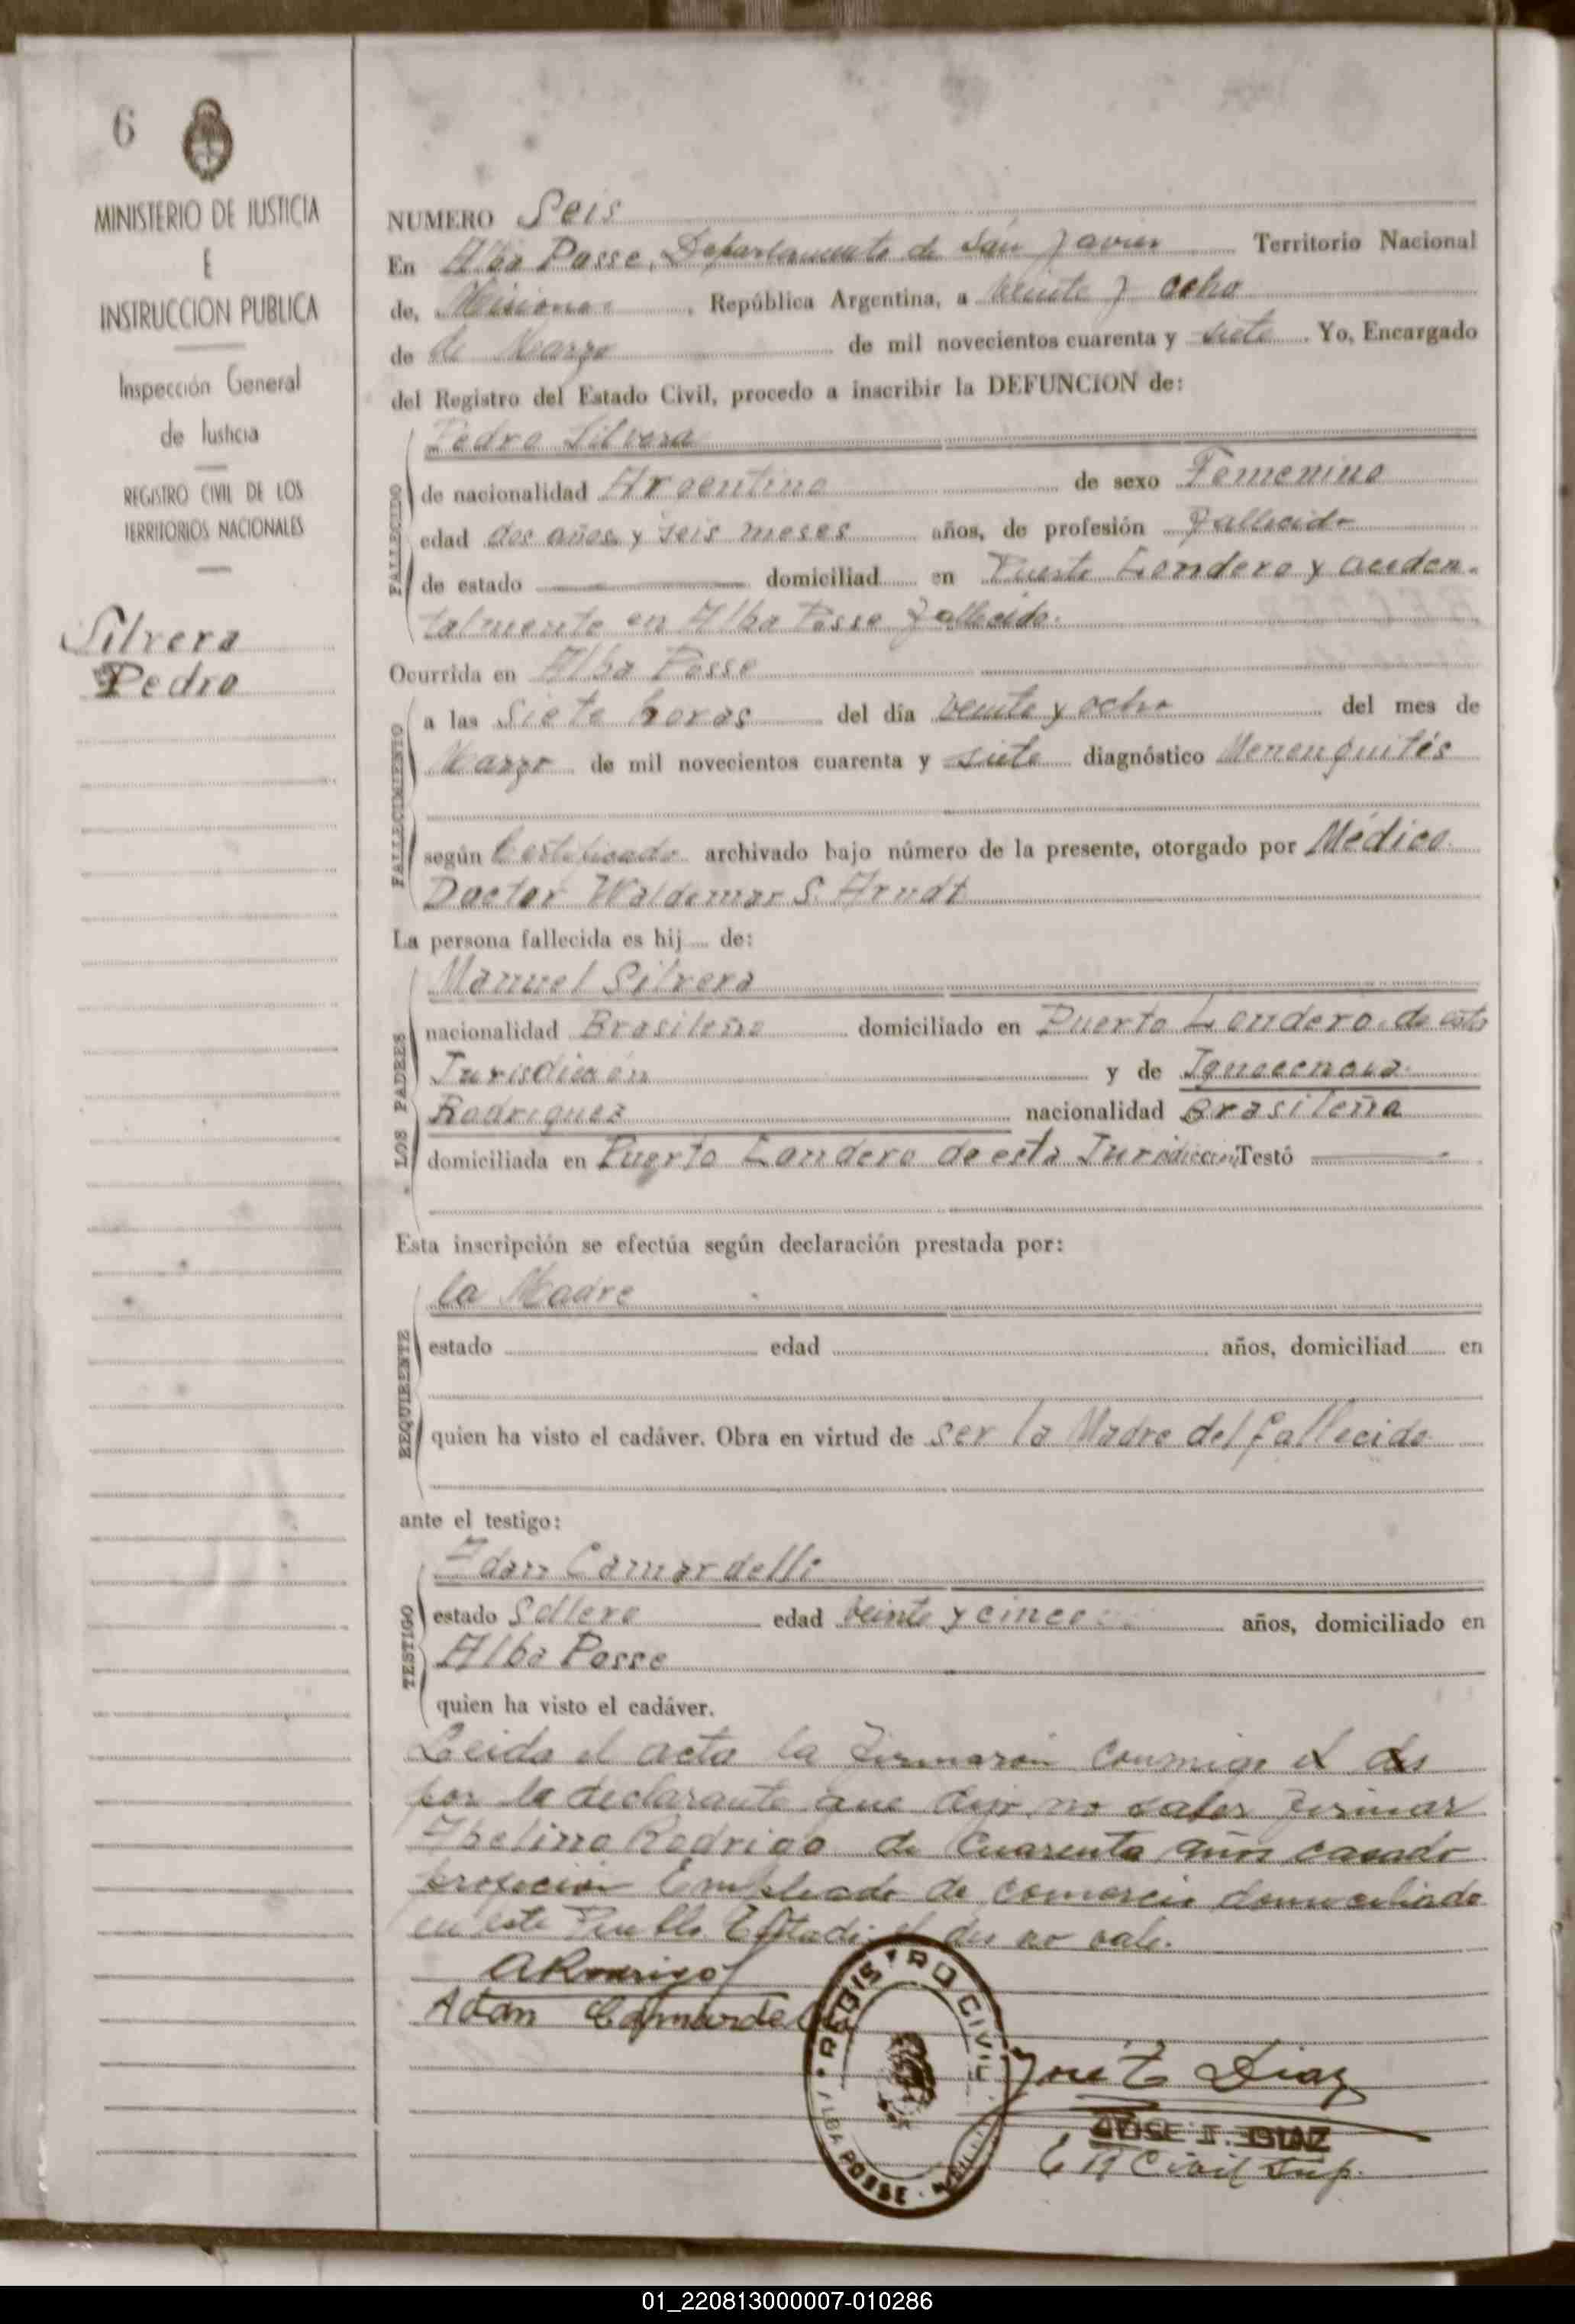 6
MINISTERIO DE JUSTICIA
E
INSTRUCCION PUBLICA
Inspección General
de Justicia
REGISTRO CIVIL DE LOS
TERRITORIOS NACIONALES
Silvera
Pedro
NUMERO Seis
En Alba Posse, Departamento de San Javier Territorio Nacional
de, Misiones, República Argentina, a veinte y ocho
de de Marzo de mil novecientos cuarenta y siete. Yo, Encargado
del Registro del Estado Civil, procedo a inscribir la DEFUNCION de:
Pedro Silvera
FALLECIDO
de nacionalidad Argentino de sexo Femenino
edad dos años y seis meses años, de profesión fallecido
de estado domiciliad en Puerto Londero y acciden-
talmente en Alba Posse fallecido.
Ocurrida en Alba Posse
FALLECIMIENTO
a las Siete horas del día veinte y ocho del mes de
Marzo de mil novecientos cuarenta y siete diagnóstico Menenguités
según Certificado archivado bajo número de la presente, otorgado por Médico
Doctor Waldemar S. Arndt
La persona fallecida es hij de:
Manuel Silvera
LOS PADRES
nacionalidad Brasileño domiciliado en Puerto Londero de esta
Jurisdicción y de Ignocencia
Rodriguez nacionalidad Brasileña
domiciliada en Puerto Londero de esta Juridiccion Testó
Esta inscripción se efectúa según declaración prestada por:
la Madre
REQUIRENTE
estado edad años, domiciliad en
quien ha visto el cadáver. Obra en virtud de ser la Madre del fallecido
ante el testigo:
Adan Camardelli
TESTIGO
estado Soltero edad veinte y cinco años, domiciliado en
Alba Posse
quien ha visto el cadáver.
Leida el acta la firmaron conmigo el des
por la declarante que dijo no saber firmar
Abelino Rodrigo de cuarenta años casado
profecion Empleado de comercio domiciliado
en este Pueblo el des no vale.
ARodrigo
Adan Camardelli
REGISTRO CIVIL
ALBA POSSE
José I. Diaz
JOSE I. DIAZ
E R Civil Sup.
01_220813000007-010286